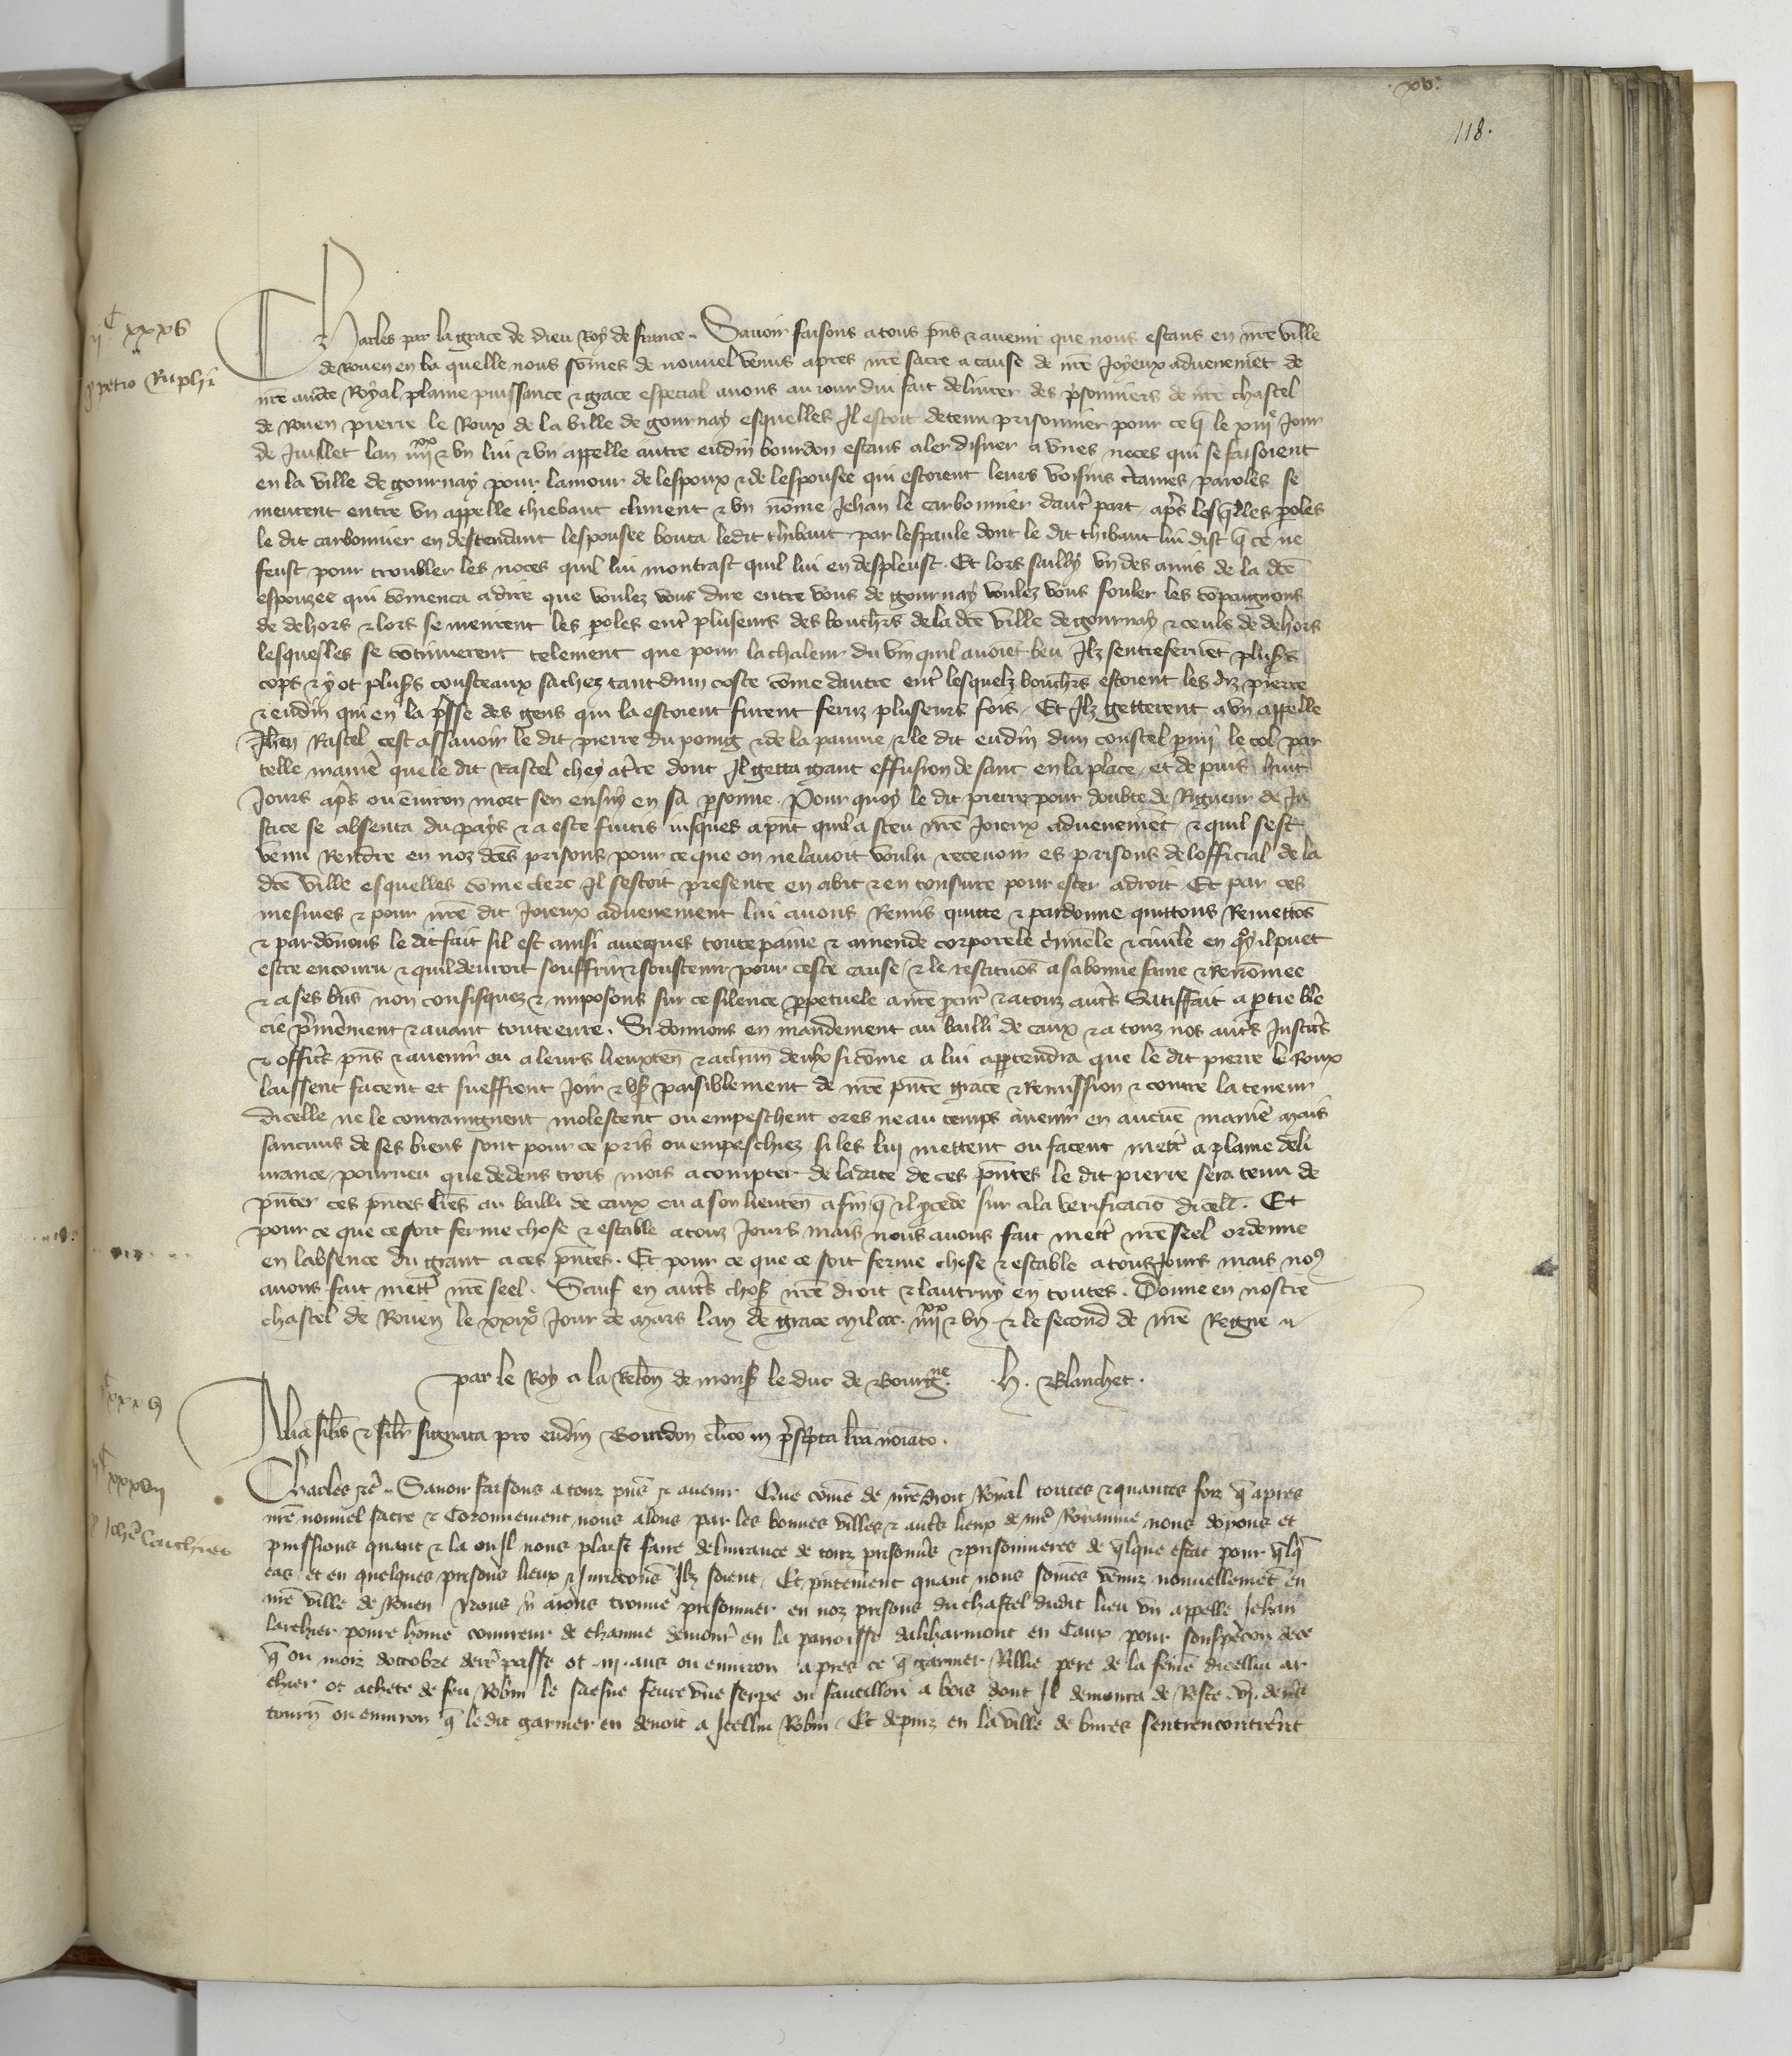 .xv.
118.
ijC xxxv
p petro Ruphi
Charles par la grace de dieu Roy de france. Savoir faisons a tous pñs & avenir que nous estans en nrẽ ville
de Rouen en la quelle nous sõmes de nouvel venus apres nrẽ sacre a cause de nrẽ Joyeux advenemẽt de
nrẽ auctẽ Royal plaine puissance & grace especial avons au jour dui fait delivrer des prisonniers de nrẽ chastel
de Rouen pierre le Roux de la ville de gournay esquelles Il estoit detenu prisonnier pour ce q̃ le xiiiie Jour
de Juillet lan iiiixx & un lui & un appelle autre eudin bourdon estans aler disner a unes noces qui se faisoient
en la ville de gournay pour lamour de lespoux & de lespousee qui estoient leurs voisins c̃taines paroles se
meurent entre un appelle thiebaut climent & un nõme Jehan le carbonnier daut̃ part apr̃s lesq̃lles p̃oles
le dit carbonnier en destendant lespousee bouta ledit thibaut par lespaule dont le dit thibaut lui dist q̃ ce ne
feust pour troubler les noces quil lui montrast quil lui en despleust. Et lors sailly un des amis de la dc̃e
espousee qui cõmenca a dire que voulez vous dire entre vous de gournay voulez vous fouler les cõpaignons
de dehors & lors se meurent les p̃oles ent̃ pluseurs des bouch̃rs de la dc̃e ville de gournay & ceuls de dehors
lesquelles se cõtinuerent telement que pour la chaleur du vin quil avoiẽt beu Ilz sentreferirẽt plus̃rs
cops & y ot plus̃rs cousteaux sachez tant dun coste cõme dautre ent̃ lesquelz bouch̃rs estoient les diz pierre
& eudin qui en la p̃sse des gens qui la estoient furent feruz pluseurs fois. Et Ilz getterent a un appelle
Jeh̃n Rastel cest assavoir le dit pierre du poing & de la paume & le dit eudin dun coustel p̃mi le col par
telle manie͂ que le dit Rastel chey a t̃re dont Il getta grant effusion de sanc en la place et de puis huit
Jours apr̃s ou ẽviron mort sen ensuy en sa p̃sonne. Pour quoy le dit pierre pour doubte de Rigueur de Ju
stice se absenta du pays & a este fuitis jusques a pñt quil a sceu nrẽ Joieux advenemẽt & quil sest
venu Rendre en noz dc̃es prisons pour ce que on ne lavoit voulu recevoir es prisons de lofficial de la
dc̃e ville esquelles cõme clerc Il sestoit presente en abit & en tonsure pour ester a droit. Et par ces
mesmes & pour nrẽ dit Joieux advenement lui avons Remis quitte & pardonne quittons Remettõs
& pardõnons le dit fait sil est ainsi avecques toute paine & amende corporele c̃minele & civile en quoy il puet
estre encouru & quil devroit souffrir & soustenir pour ceste cause & le restituõs a sa bonne fame & Renõmee
& a ses bñs non confisquez & imposons sur ce silence p̃petuele a nrẽ p̃cur̃ & a touz aut̃s Satisffait a p̃tie ble
cie p̃mierement & avant toute euvre. Si donnons en mandement au bailli de caux & a touz nos aut̃s Justic̃rs
& offic̃rs pñs & avenir ou a leurs lieuxteñ & a chũn deulx si cõme a lui app̃tendra que le dit pierre le Roux
laissent facent et sueffrent Joir & user paisiblement de nrẽ pñte grace & Remission & contre la teneur
dicelle ne le contraingnent molestent ou empeschent ores ne au temps avenir en aucũe manie͂ mais
saucuns de ses biens sont pour ce pris ou empeschiez si les lui mettent ou facent mett̃ a plaine deli
vrance pourveu que dedens trois mois a compter de la date de ces pñtes le dit pierre sera tenu de
pñter ces pñtes lr̃es au bailli de caux ou a son lieuteñ afin q̃ il p̃cede sur a la verificaciõ dicell̃. Et
pour ce que ce soit ferme chose & estable a touz Jours mais nous avons fait mett̃ nrẽ seel ordenne
en labsence du grant a ces pñtes. Et pour ce que ce soit ferme chose & estable a tous Jours mais no9
avons fait mett̃ nrẽ seel. Sauf en aut̃s chos̃ nrẽ droit & lautruy en toutes. Donne en nostre
chastel de Rouen le xxixe Jour de mars lan de grace mil ccc. iiiixx & un & le second de nrẽ Regne
par le Roy a la Rel̃on de mons̃ le duc de Bourgne. h. Blanchet.
Alia sil̃is & sil̃r signata pro eudin Bourdon cl̃ico in p̃sc̃pta lr̃a noĩato.
xxxvii
Jehẽ Larchier
Charles &c̃. Savoir faisons a touz pñs & avenir Que cõme de nrẽ droit Royal toutes & quantes foiz q̃ apres
nrẽ nouvel sacre & Coronnement nous alons par les bonnes villes & aut̃s lieux de nrẽ Royaume nous doyons et
puissions quant & la ou Il nous plaist faire delivrance de touz prisonñs & prisonnieres de q̃lque estat pour q̃lq̃
cas et en quelques prisons lieux & Juridic̃ons Ilz soient. Et pñtement quant nous sõmes venuz nouvellemẽt en
nrẽ ville de Rouen Nous y aions trouve prisonnier en noz prisons du chastel dudit lieu un appelle Jehan
larchier povre hõme couvreur de chaume demour̃ en la paroisse daliharmont en Caux pour souspec̃on de ce
q̃ ou moiz doctobre derr̃ passe ot .iij. ans ou environ apres ce q̃ garnier Rillie pere de la fẽme dicellui ar
chier ot achete de feu Robin le saesne fevre une serpe ou faucillon a bois dont Il demoura de Reste .vj. den̄rs
tourñ ou environ q̃ ledit garnier en devoit a Icellui Robin. Et depuiz en la ville de bures sentrencontrer̃nt